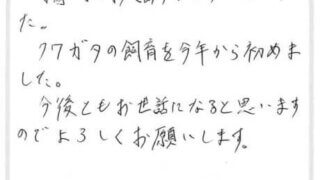 た。
クワガタの飼育を今年から初めま
した。
今後ともお世話になると思います
のでよろしくお願いします。